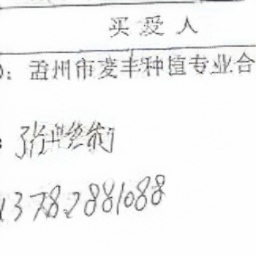 买受人
）：孟州市麦丰种植专业合
：张
13782881088